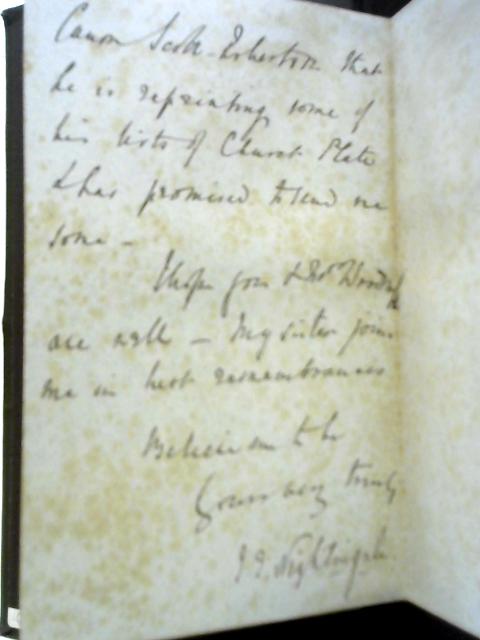 Canon Scott-Robertson that
he is reprinting some of
his lists of Church Plate
& has promised to send me
some –
I hope you & Mrs Woodruff
are well – My sister joins
me in best remembrances
Believe me to be
Yours very truly
J. E. Nightingale